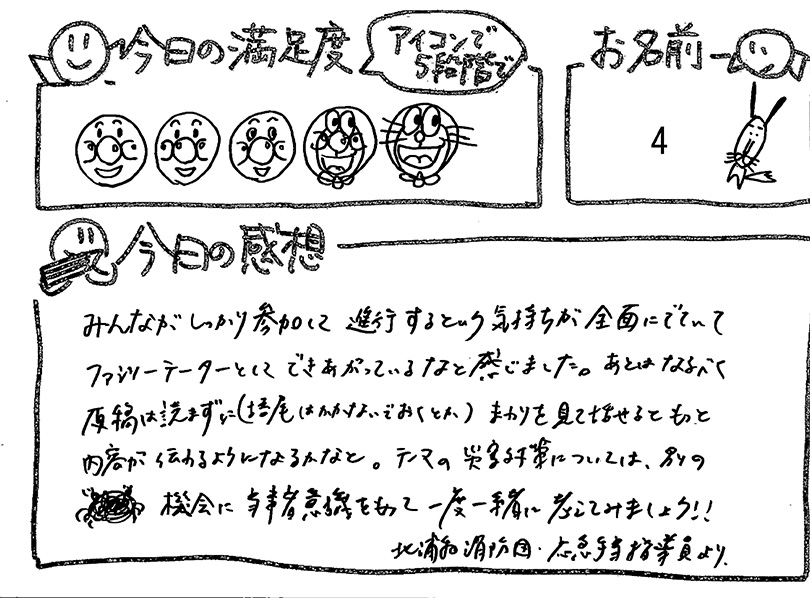 今日の満足度
アイコンで
5段階で
お名前
4
今日の感想
みんながしっかり参加して 進行するという気持ちが全面にでていて
ファシリーテーターとしてできあがっているなと感じました。あとはなるべく
原稿は読まずに(語尾はかかないでおくとか) まわりを見て話せるともっと
内容が伝わるようになるかなと。テーマの災害対策については、別の
機会に当事者意識をもって一度一緒に考えてみましょう!!
消防団・応急手当指導員より、